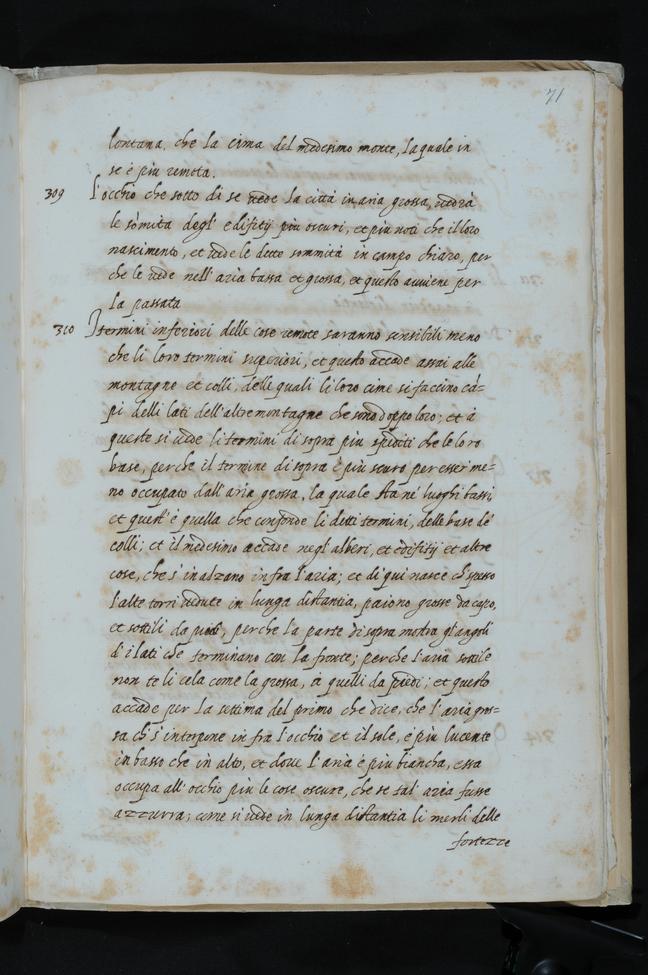 71
lontana, che la cima del medesimo monte, la quale in
se è piu remota.
309 L'occhio che sotto di se uede la città in aria grossa, uedrà
le sõmita degl' edifitij più oscuri, et piu noti che il loro
nascimento, et uede le dette sommità in campo chiaro, per
che le uede nell' aria bassa et grossa, et questo auuiene per
la passata
310 I termini inferiori delle cose remote saranno sensibili meno
che li loro termini superiori, et questo accade assai alle
montagne et colli, delle quali li loro cime si faccino cã=
pi delli lati dell'altre montagne che sono doppo loro; et à
queste si uede li termini di sopra più spediti che le loro
base, perche il termine di sopra è più scuro per esser me=
no occupato dall' aria grossa, la quale sta ne' luoghi bassi
et quest' è quella che confonde li detti termini, delle base de'
colli; et il medesimo accade negl' alberi, et edifitij et altre
cose, che s'inalzano infra l'aria; et di qui nasce ch' spesso
l'alte torri uedute in lunga distantia, paiono grosse da capo,
et sottili da piedi, perche la parte di sopra mostra gl'angoli
d' i lati che terminano con la fronte; perche l'aria sottile
non te li cela come la grossa, à quelli da piedi; et questo
accade per la settima del primo che dice, che l'aria gros=
sa ch' s'interpone infra l'occhio et il sole, è più lucente
in basso che in alto, et doue l'aria è piu bianca, essa
occupa all' occhio più le cose oscure, che se tal' aria fusse
azzurra; come si uede in lunga distantia li merli delle
fortezze